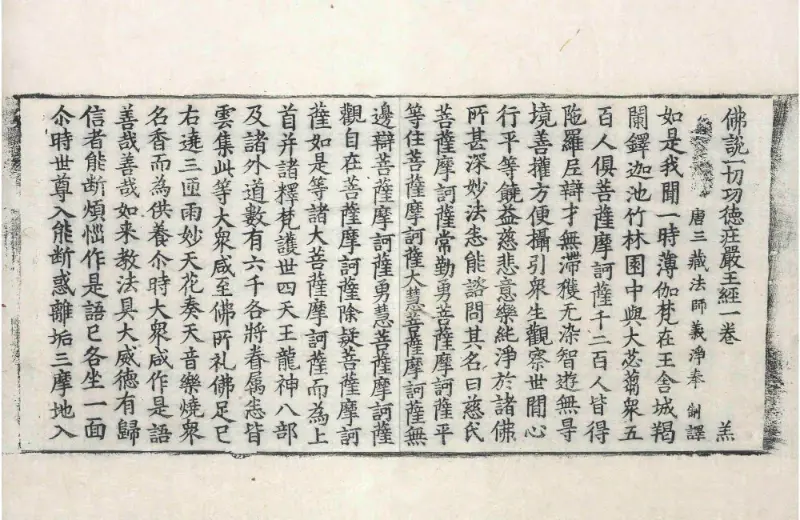 佛說一切功德疘嚴王經一卷
羔
唐三藏法師義淨奉 制譯
如是我聞一時薄伽梵在王舍城羯
闌鐸迦池竹林園中與大苾蒭衆五
百人俱菩薩摩訶薩千二百人皆得
陁羅尼辯才無滯獲无染智遊無㝵
境善權方便攝引衆生觀察世間心
行平等饒益慈悲意樂純淨於諸佛
所甚深妙法悉能諮問其名曰慈氏
菩薩摩訶薩常勤勇菩薩摩訶薩平
等住菩薩摩訶薩大慧菩薩摩訶薩無
邊辯菩薩摩訶薩勇慧菩薩摩訶薩
觀自在菩薩摩訶薩除疑菩薩摩訶
薩如是等諸大菩薩摩訶薩而為上
首并諸釋梵護世四天王龍神八部
及諸外道數有六千各將眷屬悉皆
雲集此等大衆咸至佛所礼佛足已
右遶三匝雨妙天花奏天音樂燒衆
名香而為供養尒時大衆咸作是語
善哉善哉如来教法具大威德有歸
信者能断煩惱作是語已各坐一面
尒時世尊入能断惑離垢三摩地入